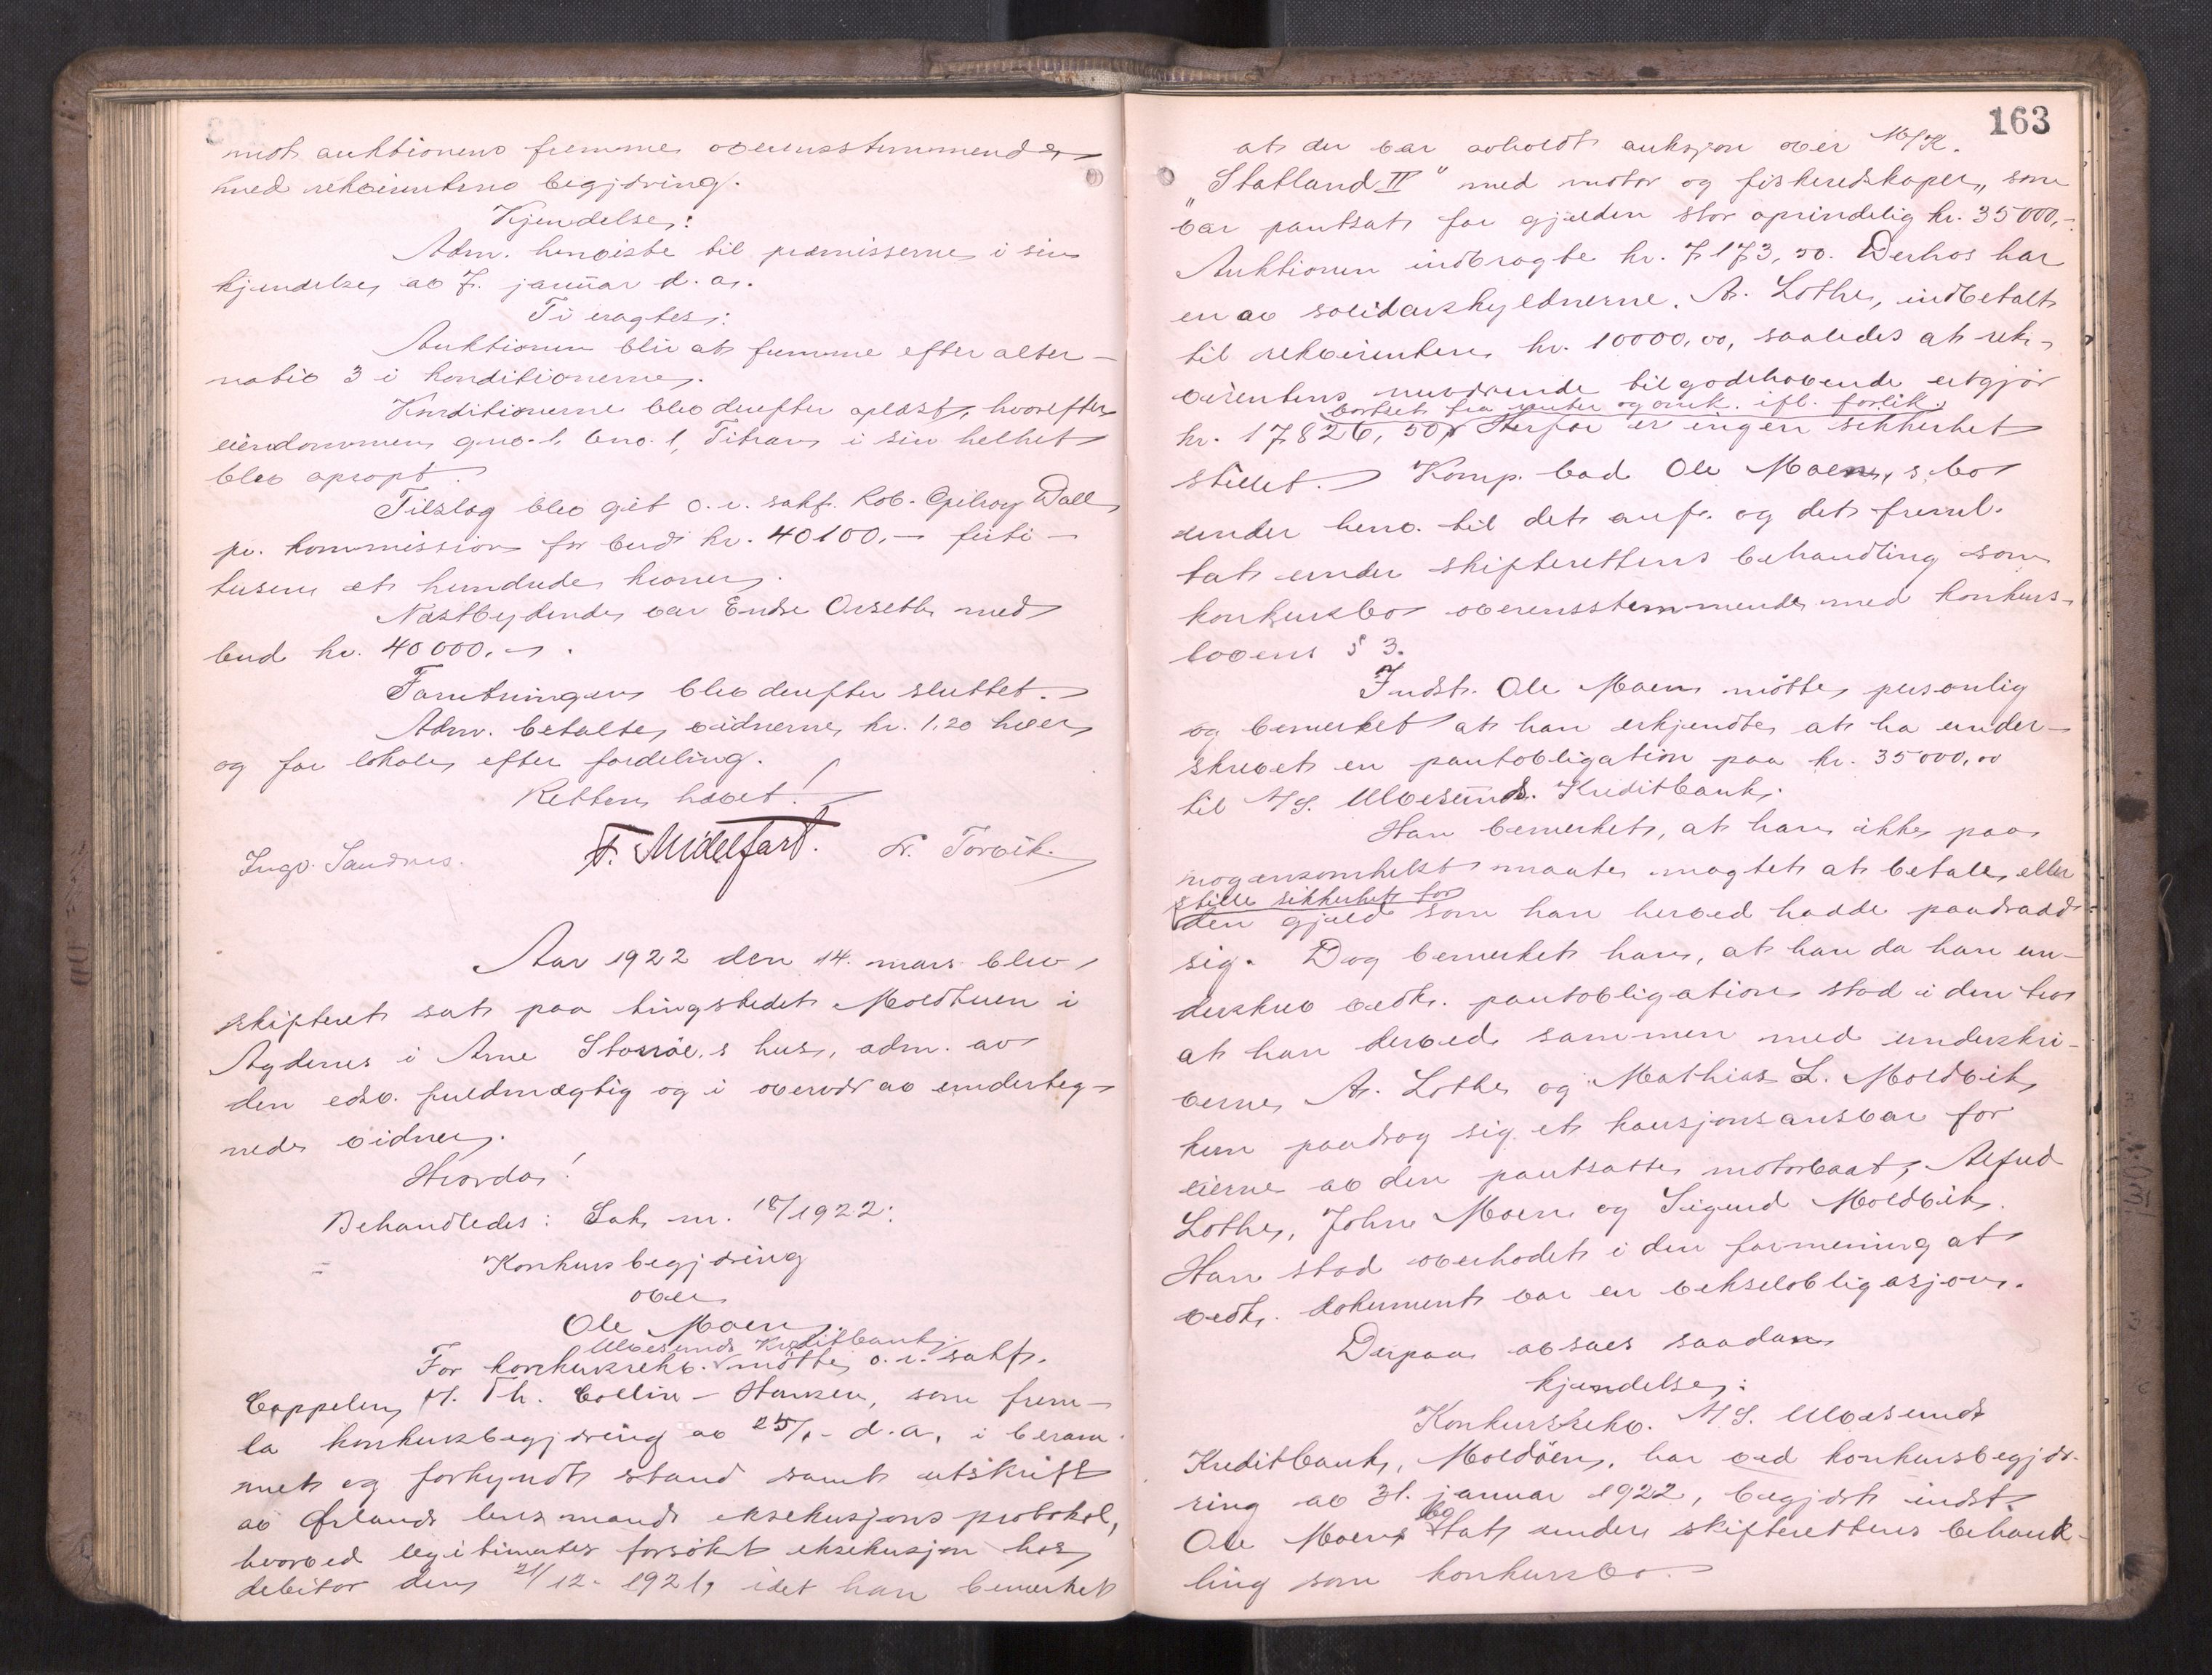 mot auktionens fremme overensstemmende
med rekvirentens begjæring.
Kjendelse:
Adm. henviste til præmisserne i sin
kjendelse av 7. januar d. a.
Ti eragtes:
Auktionen blir at fremme efter alter-
nativ 3 i konditionerne.
Konditionerne blev derefter oplæst, hvorefter
eiendommen gno. 1, bno. 1, Titran i sin helhet
blev opropt.
Tilslag blev git o. r. sakf. Rob. Gilroy Wall
pr. kommission for bud kr. 40100.- firti-
tusen et hundrede kroner.
Næstbydende var Endre Orseth med
bud kr. 40000.-.
Forretningen blev derefter sluttet.
Adm. betalte vidnerne kr. 1.20 hver
og for lokale efter fordeling.
Retten hævet!
Ingv. Sandnes. F. Midelfart. N. Torvik.
Aar 1922 den 14. mars blev
skifteret sat paa tingstedet Moldtuen i
Agdenes i Arne Storrøe,s hus, adm. av
den edsv. fuldmægtig og i overvær av underteg-
nede vidner.
Hvorda!
Behandledes: Sak nr. 18/1922:
Konkursbegjæring
over
Ole Moen.
Ulvesunds Kreditbank
For konkursrekv. møtte o. r. sakf.
Cappelen, H. Th. Collin-Hansen, som frem-
la konkursbegjæring av 25/1- d. a. i beram-
met og forkyndt stand samt utskrift
av Ørlands lensmands eksekusjonsprotokol,
hvorved legitimertes forsøkt eksekusjon hos
debitor den 21/12- 1921, idet han bemerket
163
at der var avholdt auksjon over M/K.
"Statland II" med motor og fiskeredskaper, som
var pantsat for gjælden stor oprindelig kr. 35000,-.
Auktionen indbragte kr. 7173,50. Derhos har
en av solidarskyldnerne, A. Lothe, indbetalt
til rekvirenten kr. 10000,00, saaledes at rek-
virentens nuværende tilgodehavende utgjør
bortset fra renter og omk. ifl. forlik.
kr. 17826,50. Herfor er ingen sikkerhet
stillet. Komp. bad Ole Moen,s bo
under henv. til det anf. og det freml.
tat under skifterettens behandling som
konkursbo overensstemmende med konkurs-
lovens § 3.
Indst. Ole Moen møtte personlig
og bemerket at han erkjendte at ha under-
skrevet en pantobligation paa kr. 35000,00
til A/S. Ulvesunds Kreditbank.
Han bemerket, at han ikke paa
nogensomhelst maate magtet at betale eller
stille sikkerhet for
den gjæld som han herved hadde paadradd
sig. Dog bemerket han, at han da han un-
derskrev vedk. pantobligation stod i den tro
at han derved sammen med underskri-
verne A. Lothe og Mathias L. Moldvik
kun paadrog sig et kausjonsansvar for
eierne av den pantsatte motorbaat, Alfred
Lothe, John Moen og Sigurd Moldvik.
Han stod overhodet i den formening at
vedk. dokument var en vekselobligasjon.
Derpaa avsaes saadan
kjendelse:
Konkursrekv. A/S. Ulvesunds
Kreditbank, Moldøen, har ved konkursbegjæ-
ring av 31. januar 1922, begjært indst.
Ole Moens bo tat under skifterettens behand-
ling som konkursbo.